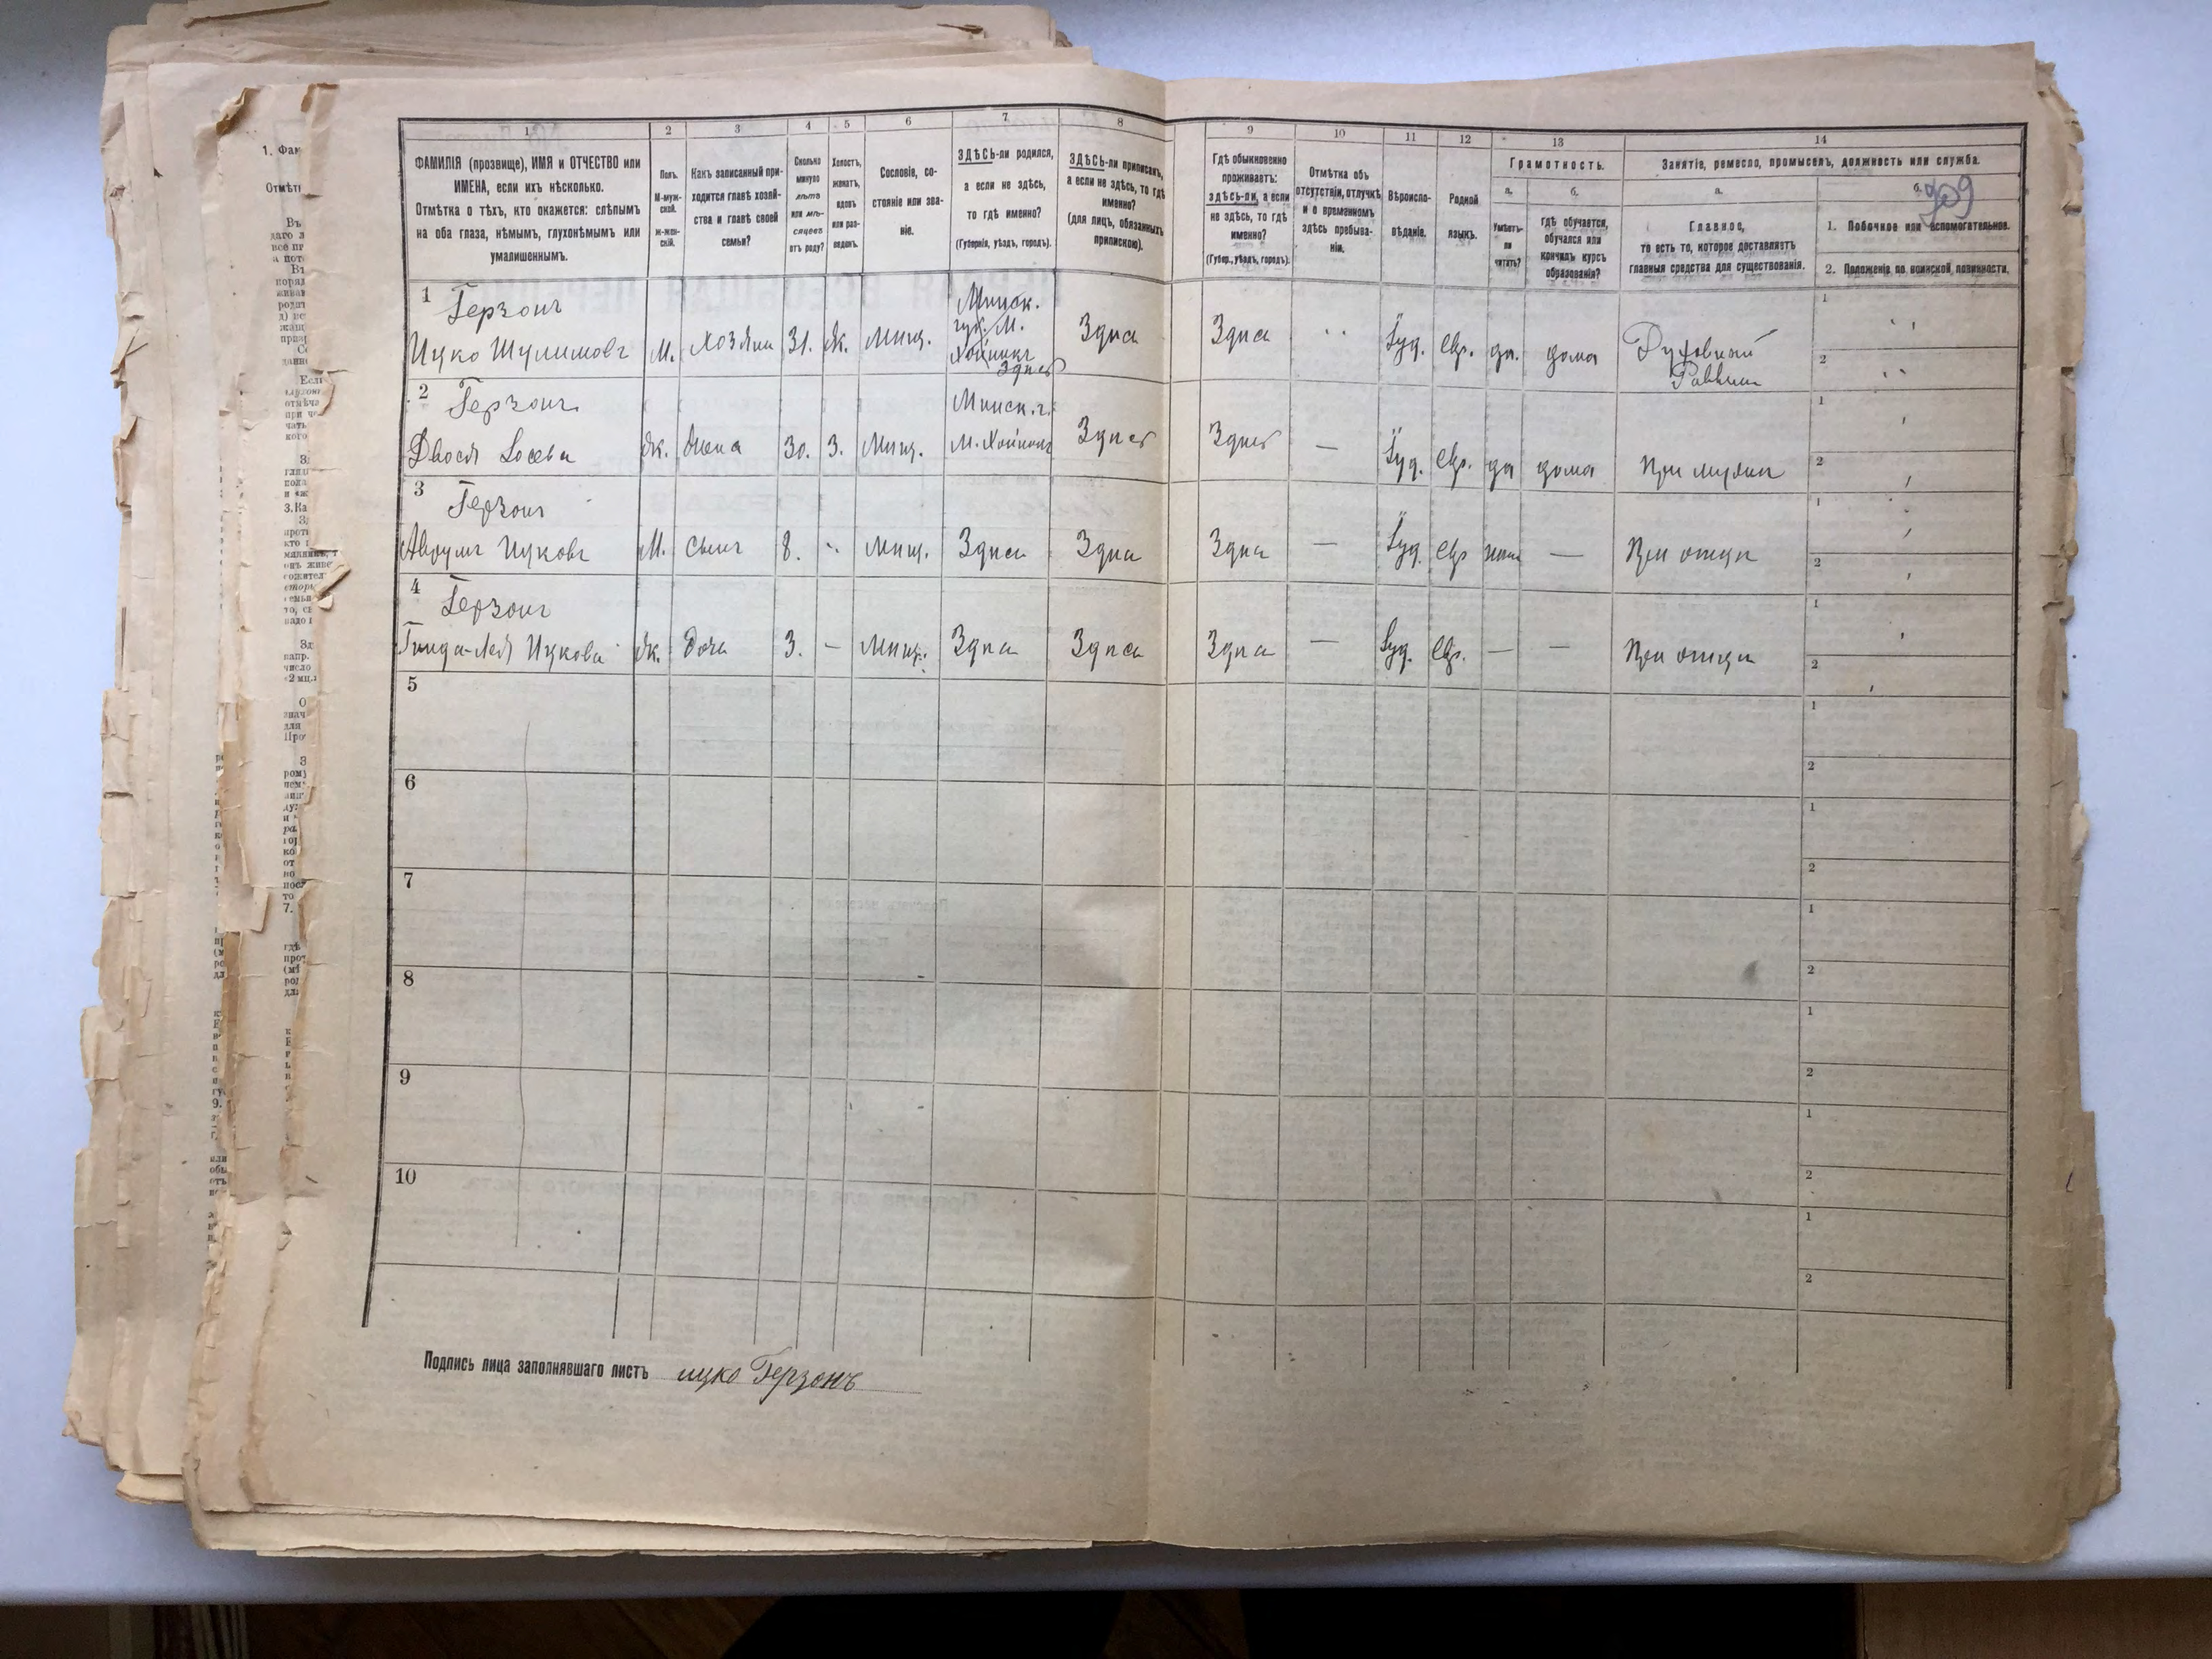 1
2
3
4
5
6
7
8
ФАМИЛІЯ (прозвище), ИМЯ и ОТЧЕСТВО или
ИМЕНА, если ихъ нѣсколько.
Отмѣтка о тѣхъ, кто окажется: слѣпымъ
на оба глаза, нѣмымъ, глухонѣмымъ или
умалишеннымъ.
Полъ.
М-муж-
ской.
ж-жен-
скій.
Какъ записанный при-
ходится главѣ хозяй-
ства и главѣ своей
семьи?
Сколько
минуло
лѣтъ
или мѣ-
сяцевъ
отъ роду?
Холостъ,
женатъ,
вдовъ
или раз-
веденъ.
Сословіе, со-
стояніе или зва-
ніе.
ЗДѢСЬ-ли родился,
а если не здѣсь,
то гдѣ именно?
(Губернія, уѣздъ, городъ).
ЗДѢСЬ-ли приписанъ,
а если не здѣсь, то гдѣ
именно?
(для лицъ, обязанныхъ
припискою).
9
10
11
12
13
14
Гдѣ обыкновенно
проживаетъ:
здѣсь-ли, а если
не здѣсь, то гдѣ
именно?
(Губер., уѣздъ, городъ).
Отмѣтка объ
отсутствіи, отлучкѣ
и о временномъ
здѣсь пребыва-
ніи.
Вѣроиспо-
вѣданіе.
Родной
языкъ.
Грамотность.
а.
б.
Умѣетъ-
ли
читать?
гдѣ обучается,
обучался или
кончилъ курсъ
образованія?
Занятіе, ремесло, промыселъ, должность или служба.
а.
б.
909
Главное,
то есть то, которое доставляетъ
главныя средства для существованія.
1. Побочное или вспомогательное.
2. Положеніе по воинской повинности.
1
Герзонъ
Ицко Шулимовъ
М.
хозяин
31.
Ж.
Мищ.
Минск.
губ. М.
Хойники
Здись
Здись
Здись
Іуд.
Евр.
да.
дома
Духовный
Раввин
1
2
2
Герзонъ
Двося Іосева
Ж.
жена
30.
З.
Мищ.
Минск. г.
М. Хойники
Здись
Здись
—
Іуд.
Евр.
да
дома
При мужи
1
2
3
Герзонъ
Аврумъ Ицковъ
М.
сынъ
8.
Мищ.
Здись
Здись
Здись
—
Іуд.
Евр
—
При отци
1
2
4
Герзонъ
Гинда-Лея Ицкова
Ж.
дочь
3.
—
Мищ.
Здись
Здись
Здись
—
Іуд.
Евр.
—
—
При отци
1
2
5
1
2
6
1
2
7
1
2
8
1
2
9
1
2
10
1
2
Подпись лица заполнявшаго листъ ицко Герзонъ